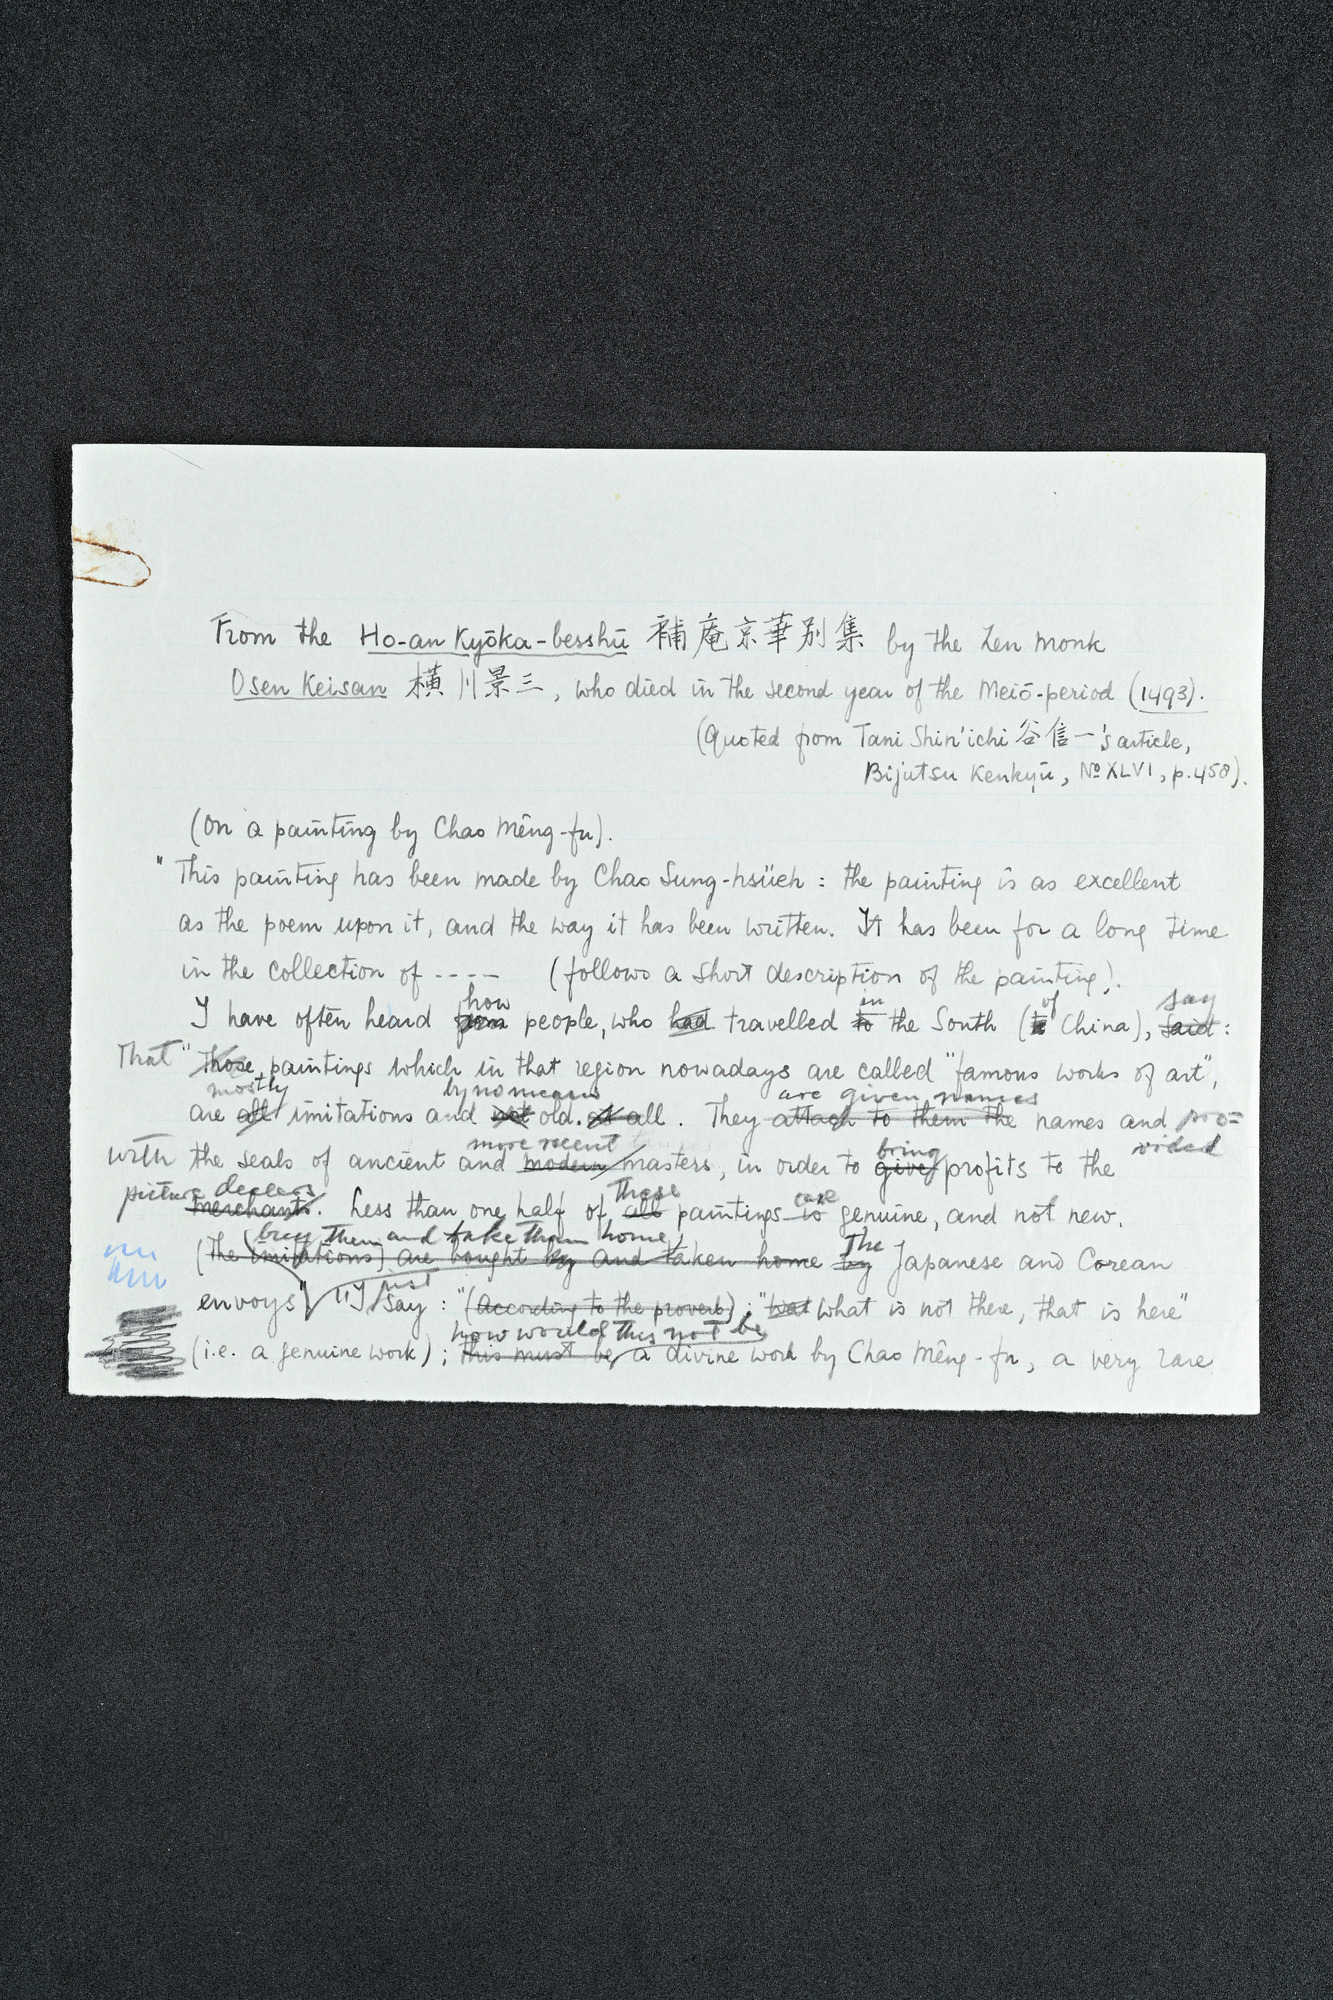 From the Ho-an Kyōka-besshū 補庵京華別集 by the Zen monk
Osen Keisan 横川景三, who died in the second year of the Meiō-period (1493).
(Quoted from Tani Shin'ichi 谷信一's article,
Bijutsu Kenkyū, No XLVI, p.458).
(On a painting by Chao Mêng-fu).
"This painting has been made by Chao Sung-hsüeh: the painting is as excellent
as the poem upon it, and the way it has been written. It has been for a long time
in the collection of ---- (follows a short description of the painting).
how in of say
I have often heard from people, who had travelled to the South (China), said:
That "Those paintings which in that region nowadays are called "famous works of art",
mostly by no means are given names
are all imitations and not old at all. They attach to them the names and pro=
more recent bring vided
with the seals of ancient and modern masters, in order to give profits to the
picture dealers These are
merchants. Less than one half of all paintings is genuine, and not new.
(buy them and take them home, The
(The imitations) are bought by and taken home by Japanese and Corean
just
envoys" "I say: "(According to the proverb); "what what is not there, that is here"
how would this not be
(i.e. a genuine work); this must be a divine work by Chao Mêng-fu, a very rare